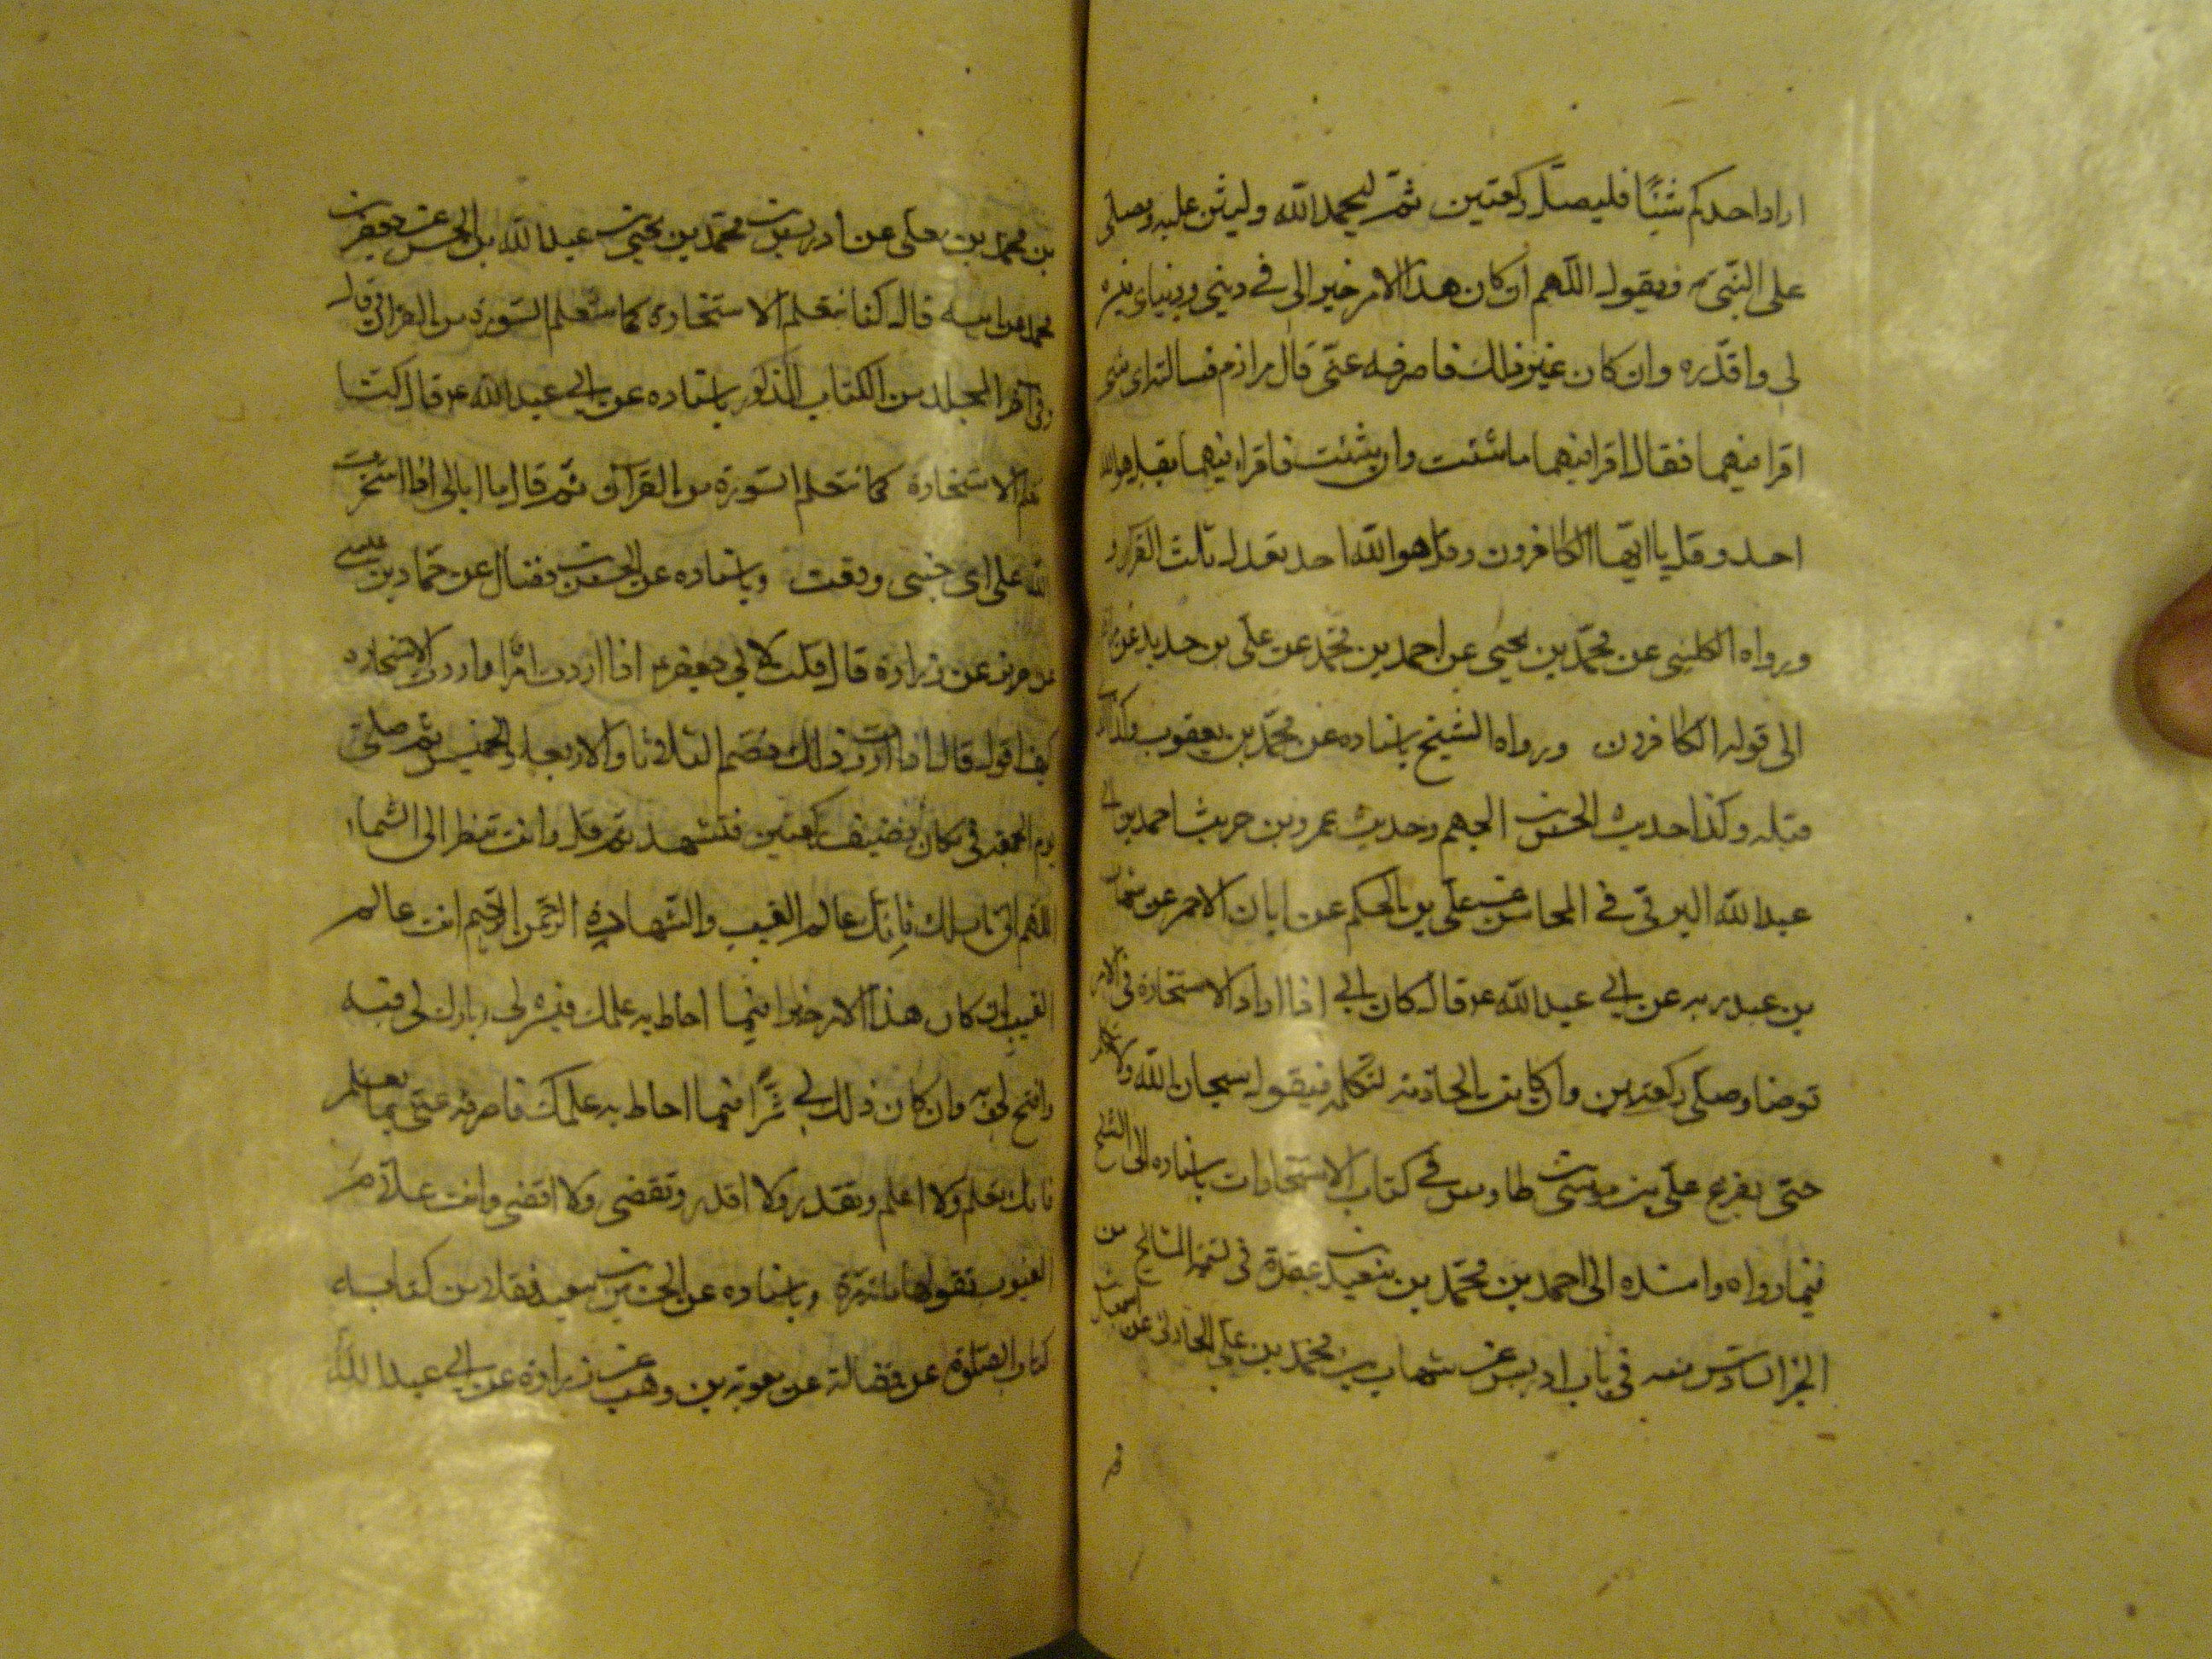 اراد احدكم شيئا فليصل ركعتين ثم ليحمد الله وليثن عليه ويصلى
على النبى ص ويقول اللهم ان كان هذا الامر خيرا لى فى دينى ودنياى فيسره
لى واقدره وان كان غير ذلك فاصرفه عنى قال مرازم فسالته اى شى
اقرا فيهما فقال اقرا فيهما ما شئت وان شئت فاقرا فيهما بقل هو الله
احد وقل يا ايها الكافرون وقل هو الله احد تعدل ثلث القران
ورواه الكلينى عن محمد بن يحيى عن احمد بن محمد عن على بن حديد عن
الى قوله الكافرون ورواه الشيخ باسناده عن محمد بن يعقوب وكذا
قبله وكذا حديث الحسن بن الجهم وحديث عمرو بن حريث احمد بن ابى
عبد الله البرقى فى المحاسن عن على بن الحكم عن ابان الاحمر عن شهاب
بن عبد ربه عن ابى عبد الله ع قال كان ابى اذا اراد الاستخارة فى الامر
توضا وصلى ركعتين وان كانت الخادمة لتكلمه فيقول سبحان الله ولا
حتى يفرغ على بن موسى بن طاوس فى كتاب الاستخارات باسناده الى الشيخ
فيما رواه واسنده الى احمد بن محمد بن سعيد بن عقدة فى المشايخ من
الجزء السادس منه فى باب ادريس عن شهاب بن محمد بن على الحارثى عن
بن محمد بن على عن ادريس بن محمد بن يحيى بن عبد الله بن الحسن عن جعفر بن
محمد عن ابيه قال كنا نتعلم الاستخارة كما نتعلم السورة من القران قال
وفى اخر المجلد من الكتاب المذكور باسناده عن ابى عبد الله ع قال كنا
نتعلم الاستخارة كما نتعلم السورة من القران ثم قال ما ابالى اذا استخرت
الله على اى جنبى وقعت وباسناده عن الحسن بن فضال عن حماد بن عيسى
عن حريز عن زرارة قال قلت لابى جعفر ع اذا اردت امرا واردت الاستخارة
كيف اقول قال اذا اردت ذلك فصم الثلاثا والاربعا والخميس ثم صل
يوم الجمعة فى مكان نظيف ركعتين فتشهد ثم قل وانت تنظر الى السماء
اللهم انى اسالك بانك عالم الغيب والشهادة الرحمن الرحيم انت عالم
الغيب ان كان هذا الامر خيرا فيما احاط به علمك فيسره لى وبارك لى فيه
وافتح لى به وان كان ذلك لى شرا فيما احاط به علمك فاصرفه عنى بما تعلم
فانك تعلم ولا اعلم وتقدر ولا اقدر وتقضى ولا اقضى وانت علام
الغيوب تقولها مائة مرة وباسناده عن الحسين بن سعيد فقلا من كتابه
كتاب الصلوة عن فضالة عن معوية بن وهب عن زرارة عن ابى عبد الله